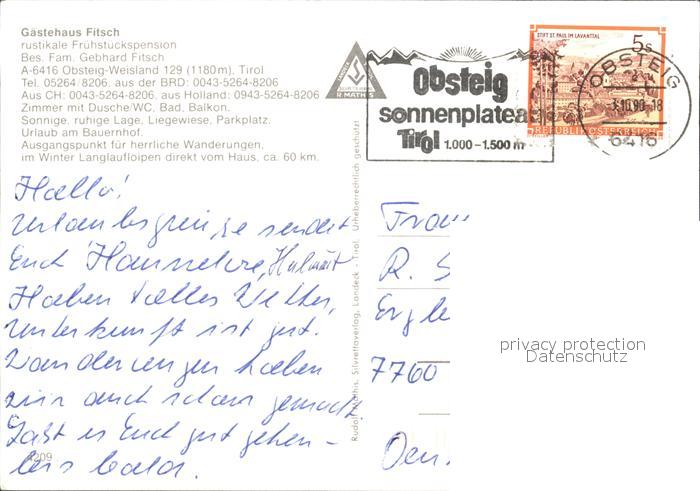 Gästehaus Fitsch
rustikale Frühstückspension
Bes. Fam. Gebhard Fitsch
A-6416 Obsteig-Weisland 129 (1180m), Tirol
Tel. 05264/8206, aus der BRD: 0043-5264-8206
Aus CH: 0043-5264-8206, aus Holland: 0943-5264-8206
Zimmer mit Dusche/WC, Bad, Balkon.
Sonnige, ruhige Lage, Liegewiese, Parkplatz.
Urlaub am Bauernhof.
Ausgangspunkt für herrliche Wanderungen,
im Winter Langlaufloipen direkt vom Haus, ca. 60 km.
R MATHIS
Obsteig
sonnenplateau
Tirol 1.000-1.500 m
STIFT ST. PAUL IM LAVANTTAL
5s
REPUBLIK ÖSTERREICH
OBSTEIG
-3.10.90-18
6416
Hallo!
Urlaubsgrüsse sendet
Euch Hannelore, Helmut
Haben tolles Wetter,
Unterkunft ist gut.
Wanderungen haben
wir auch schon gemacht
Laßt es Euch gut gehen -
bis bald.
209
Rudolf Mathis, Silvrettaverlag, Landeck - Tirol. Urheberrechtlich geschützt
Frau
R. S
Engle
7760
privacy protection
Datenschutz